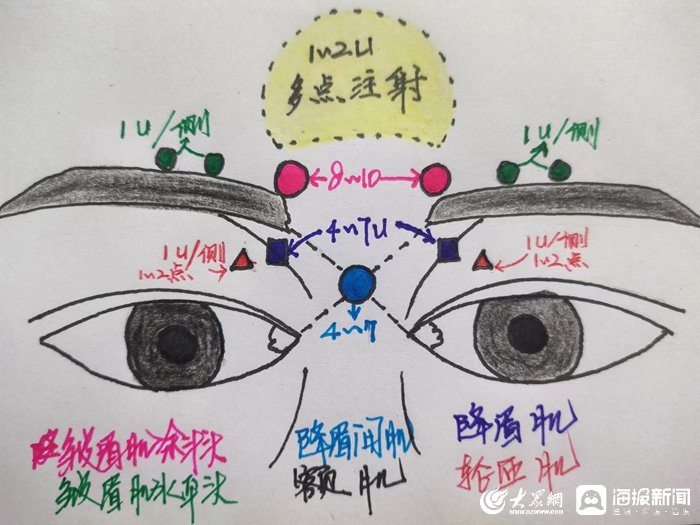 1~2U
多点注射
1U/侧
1U/侧
8~10
4~7U
1U/侧
1~2点
1U/侧
1~2点
4~7
皱眉肌斜头
皱眉肌水平头
降眉间肌
额肌
降眉肌
轮匝肌
大众网
www.dzwww.com
海报新闻